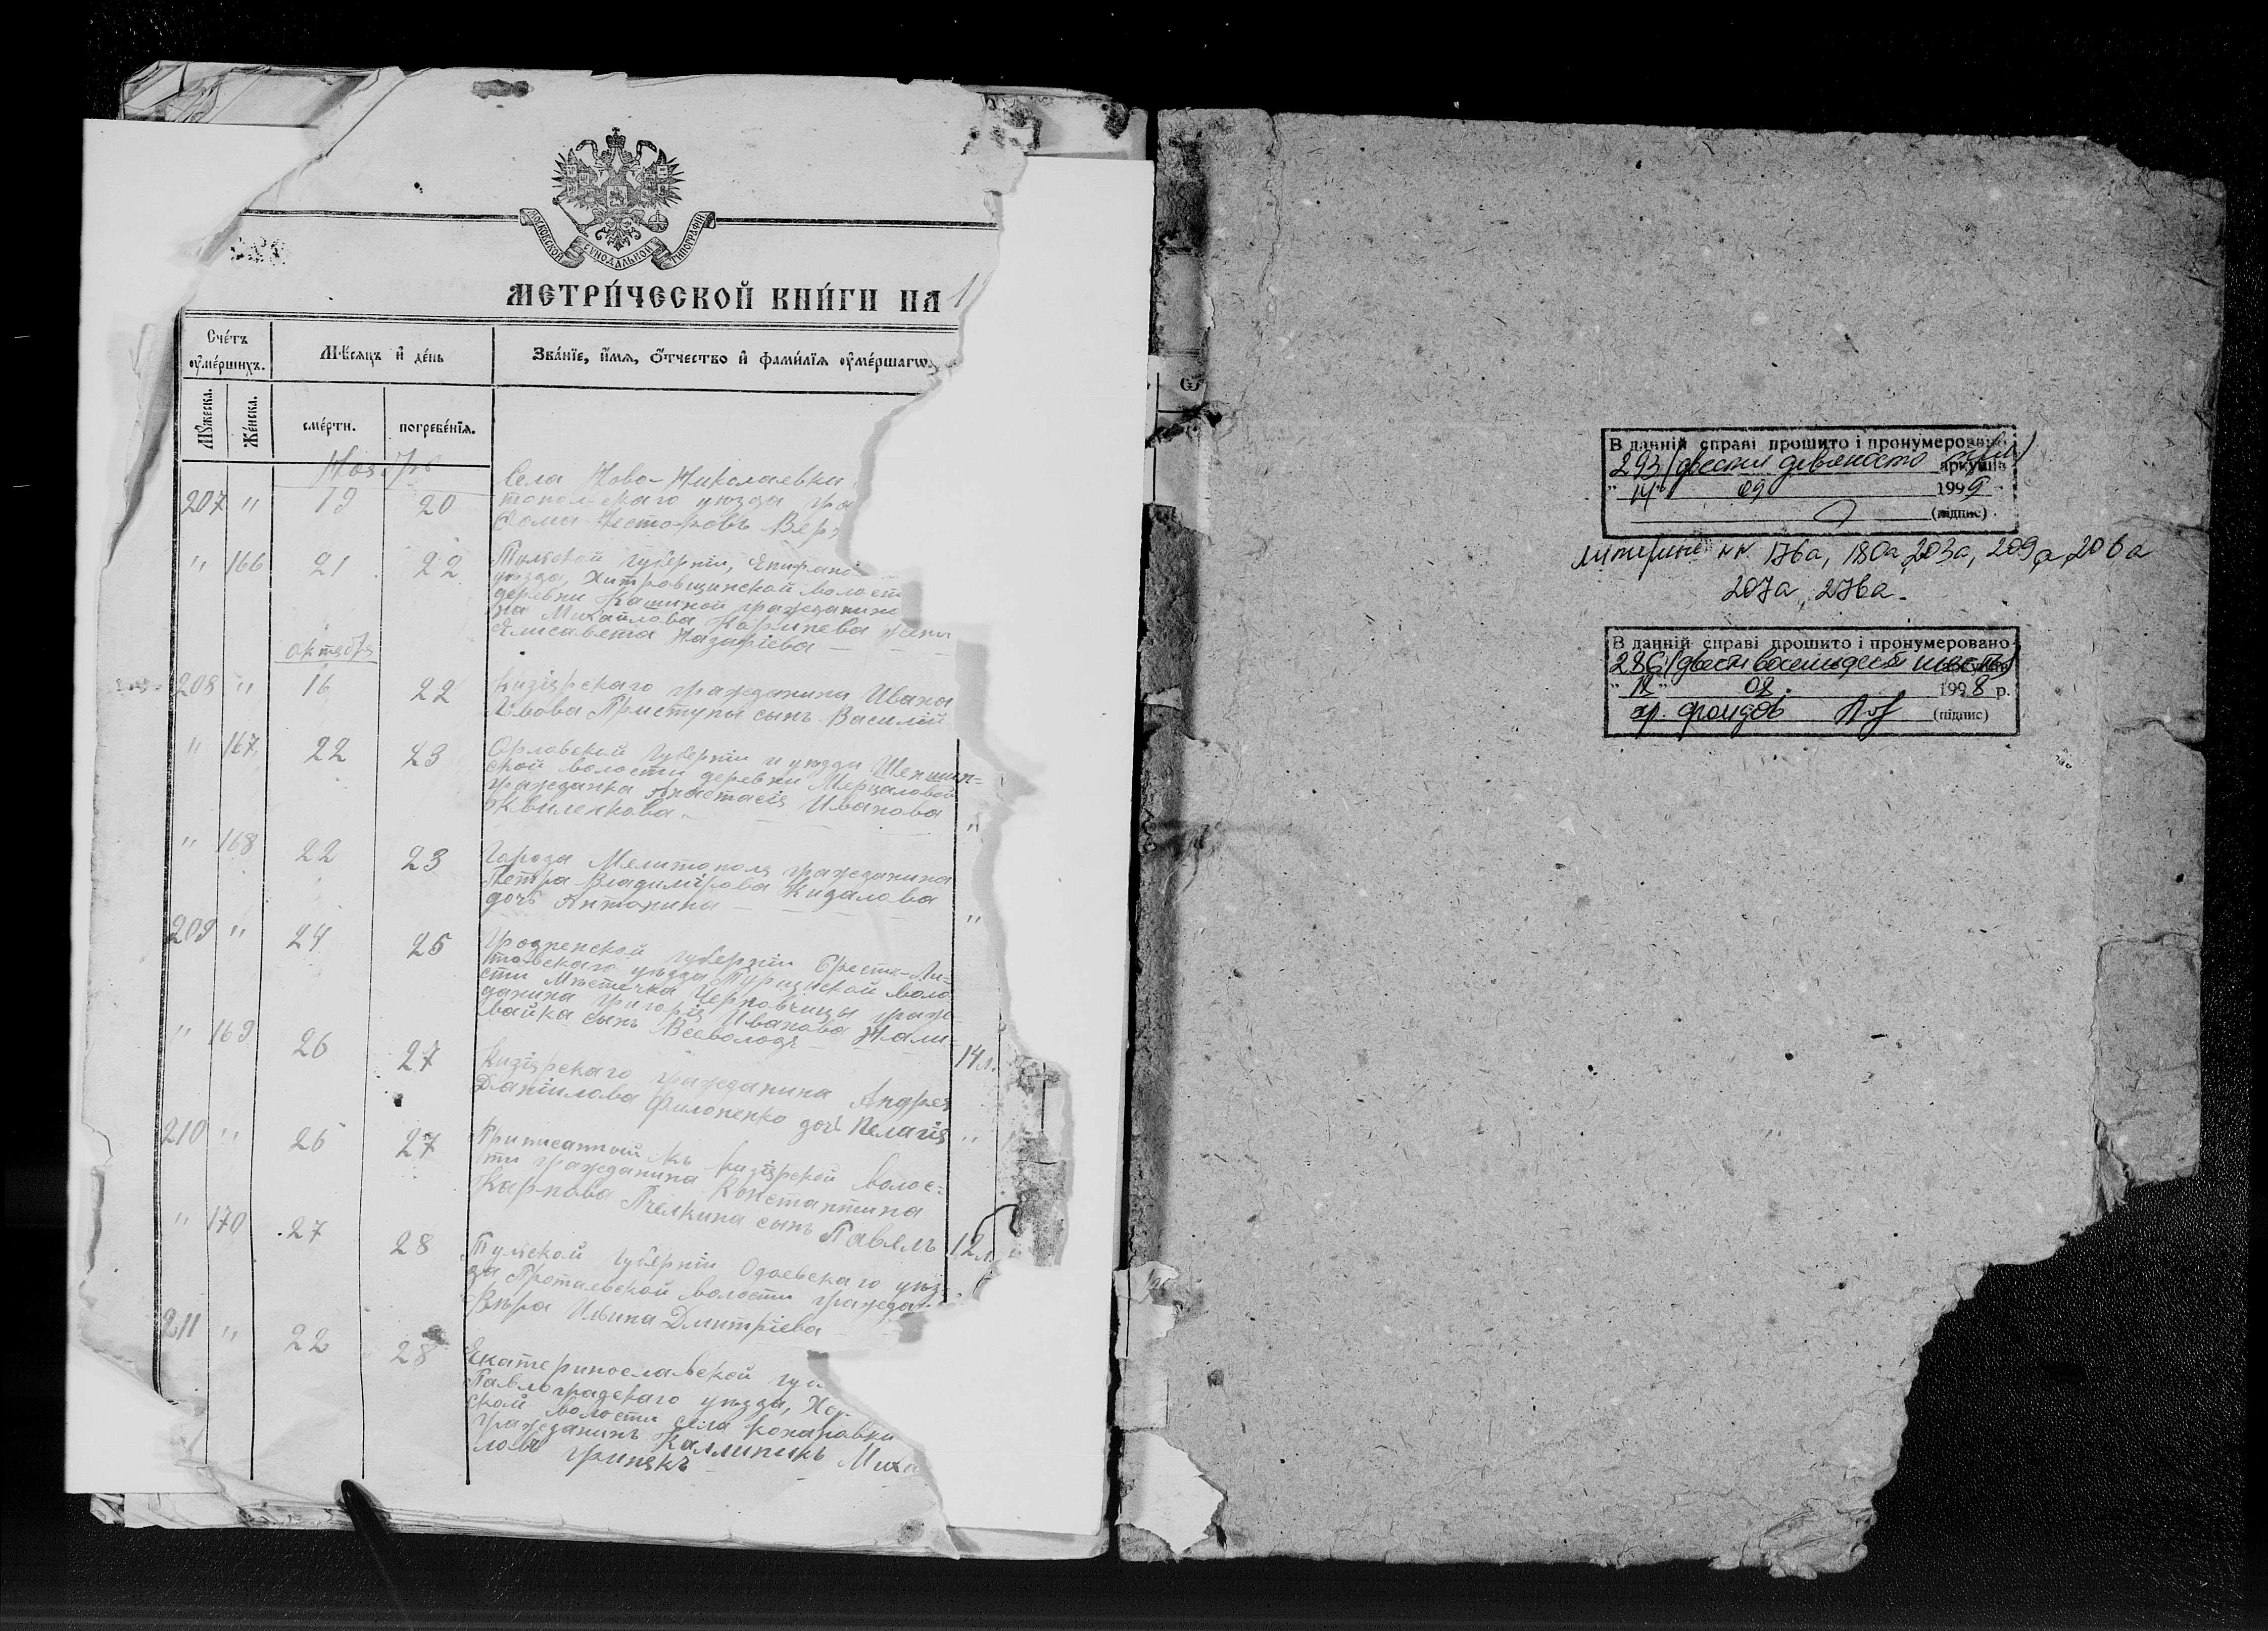 МОСКОВСКОЙ СѴНОДАЛЬНОЙ ТИПОГРАФІИ
МЕТРИ́ЧЕСКОЙ КНИ́ГИ НА 1
Сче́тъ
ᲂу҆ме́ршихъ.
Мѣ́сяцъ и҆ де́нь
Зва́нїе, и҆́мя, ѻ҆́тчество и҆ фами́лїя ᲂу҆ме́ршагѡ.
Мꙋ́жеска.
Же́нска.
сме́рти.
погребе́нїя.
Ноября
207 " 19 20
Села Ново-Николаевки
топольскаго уѣзда гра
Ѳома Несторовъ Вер
" 166 21 22
Тульской губерніи, Епифанс
уѣзда, Хитровщинской волост
деревни Кашиной гражданин
на Михайлова жена
Елисавета Назаріева
октября
208 " 16 22
Кизіярскаго гражданина Ивана
Приступы сынъ Василій
" 167 22 23
Орловской губерніи и уѣзда Шеншин=
ской волости деревни Мерцаловой
гражданка Анастасія Иванова
Жвиленкова
"
" 168 22 23
Города Мелитополя гражданина
Петра Владимірова Кидалова
дочь Антонина
"
209 " 24 25
Гродненской губерніи Брестъ-Ли=
товскаго уѣзда, воло
сти Мѣстечка Черновчицы граж
данина Григорія Иванова Нали=
вайка сынъ Всеволодъ
14 л.
" 169 26 27
Кизіярскаго гражданина Андрея
Даніилова Филоненко дочь Пелагія
"
210 " 26 27
Приписанной къ Кизіярской волос=
ти гражданина Константина
Карпова Пчелкина сынъ Павелъ
12 л.
" 170 27 28
Тульской губерніи Одоевскаго уѣз=
да волости гражда
Вѣра Ильина Дмитріева
211 " 22 28
Екатеринославской гу
Павлоградскаго уѣзда,
ской волости села Коханавки
гражданинъ Каллиникъ Миха
ловъ Гринякъ
В данній справі прошито і пронумеровано
293 (двести девяносто три) аркушів
" 14 " 09 1999
(підпис)
литерные NN 176а, 180а, 203а, 209а, 206а
207а, 276а.
В данній справі прошито і пронумеровано
286 (двести восемьдесят шесть)
" 12 " 02. 1998 р.
хр. фондов (підпис)